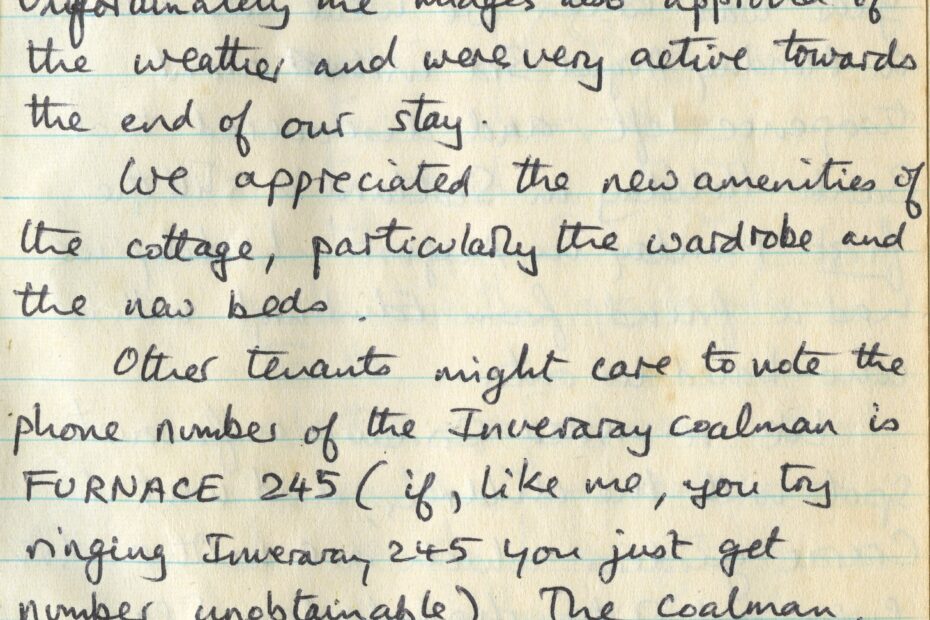 Unfortunately the midges also approved of
the weather and were very active towards
the end of our stay.
We appreciated the new amenities of
the cottage, particularly the wardrobe and
the new beds.
Other tenants might care to note the
phone number of the Inveraray coalman is
FURNACE 245 (if, like me, you try
ringing Inveraray 245 you just get
number unobtainable). The coalman